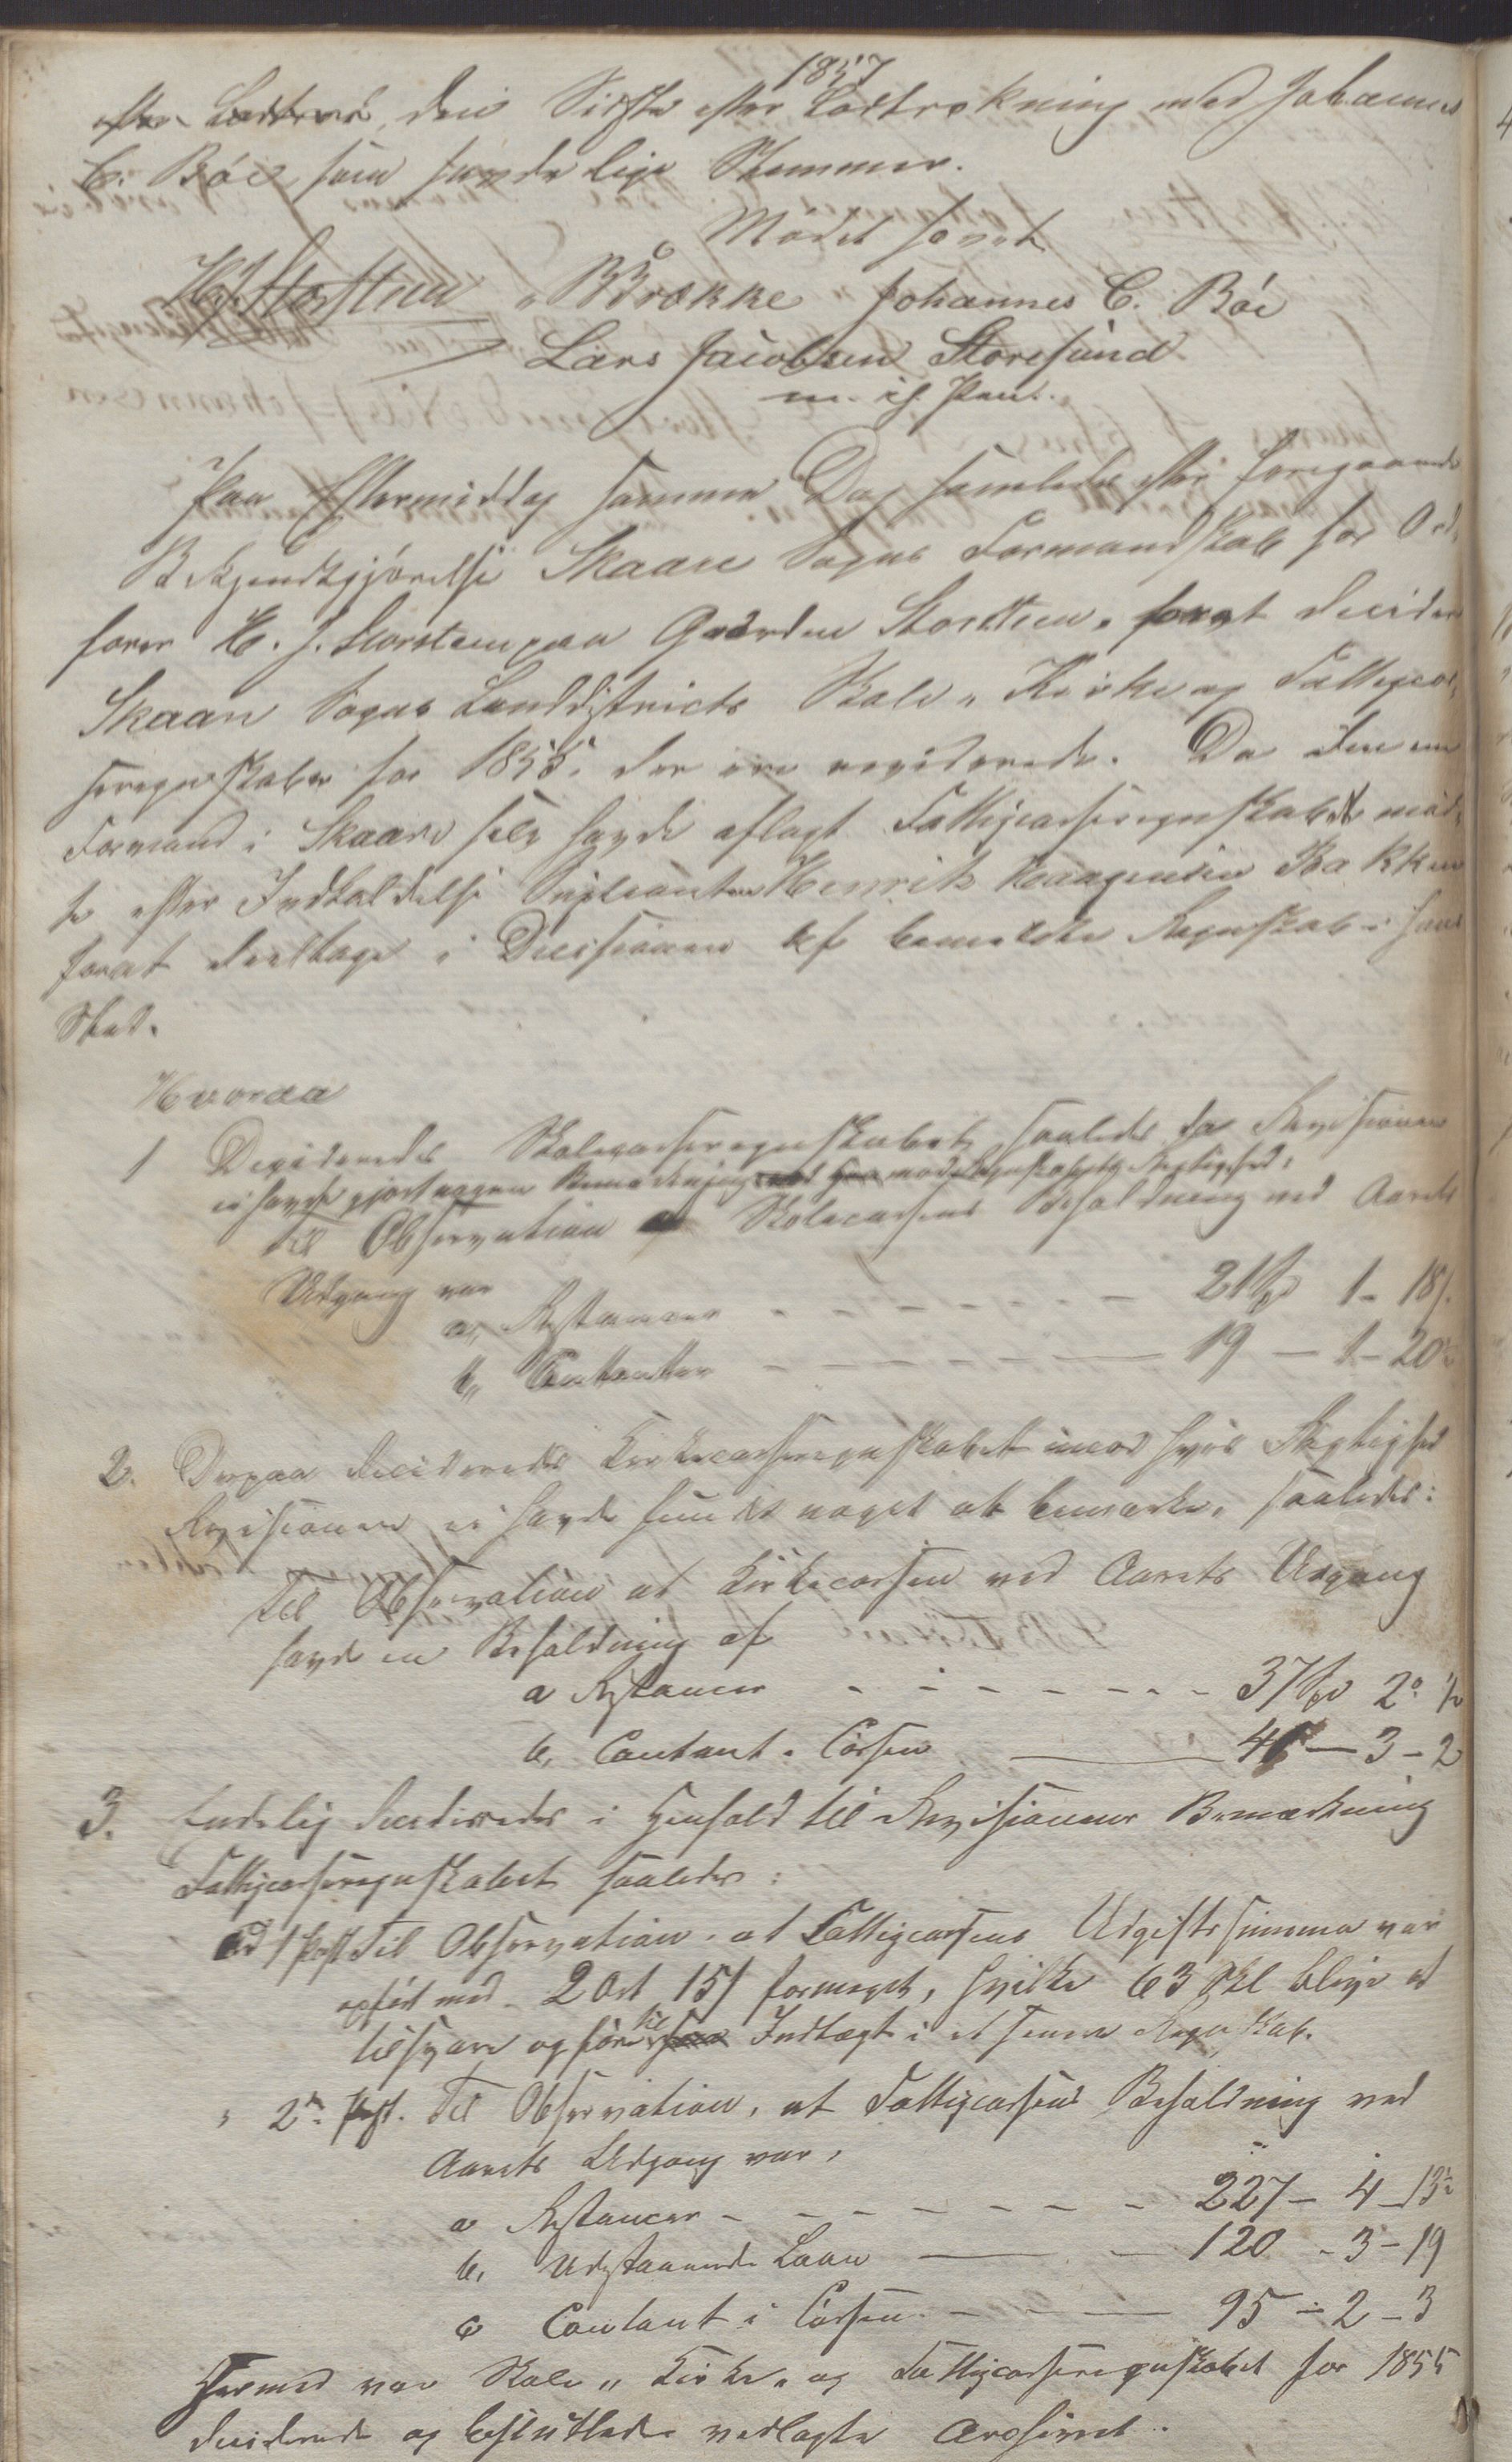 1857
efter Lodtræk, den Sidste efter Lodtrækning med Johannes
C. Böe som havde lige Stemmer.
Mödet hævet
H. J. Storsteen " BBrække Johannes C. Böe
Lars Jacobsen Storesund
m. i. h. Pen.
Paa Eftermiddag samme Dag samledes efter foregaaende
Bekjendtgjörelse Skaare Sogns Formandskab hos Ord,
förer H. J. Storsteen paa Gaarden Storsteen, forat decidere
Skaare Sogns Landdistricts Skole, Kirke og Fattigcas,
seregnskaber for 1855, der ere reviderede. Da den ene
Formand i Skaare selv havde aflagt Fattigcasseregnskabet möd,
te efter Indkaldelse Supleanten Henrik Haagensen Bakken
forat deeltage i Decisionen af bemeldte Regnskab i hans
Sted.
Hvorda
1 Decideredes Skolecasseregnskabet saaledes da Revisionen
ei havde gjort nogen Bemærkning mod Regnskabets Rigtighed:
Til Observation at Skolecassens Beholdning ved Aarets
Udgang var
a, Restancer - - - - - - - 21 Spd 1 - 18 s.
b, Contanter - - - 19 - 1 - 20
2. Derpaa decideredes Kirkecasseregnskabet imod hvis Rigtighed
Revisionen ei havde fundet noget at bemærke, saaledes:
Til Observation at Kirkecassen ved Aarets Udgang
havde en Beholdning af
a Restancer - - - - - - - 37 Spd 2
b, Contant i Cassen - 3 - 2
3. Endelig decideredes i Henhold til Revisionens Bemærkning
Fattigcasseregnskabet saaledes:
Ad 1 Post Til Observation, at Fattigcassens Udgiftssumma var
opfört med 2 Ort 15 s formeget, hvilke 63 Skl blive at
tilsvare og före til Indtægt i et senere Regnskab.
" 2den Post. Til Observation, at Fattigcassens Beholdning ved
Aarets Udgang var,
a Restancer - - - - - - 227 - 4 - 13½
b, Udestaaende Laan - 120 - 3 - 19
c Contant i Cassen - - - 95 - 2 - 3
Hermed var Skole " Kirke " og Fattigcasseregnskabet for 1855
deciderede og besluttedes vedlagte Archivet.